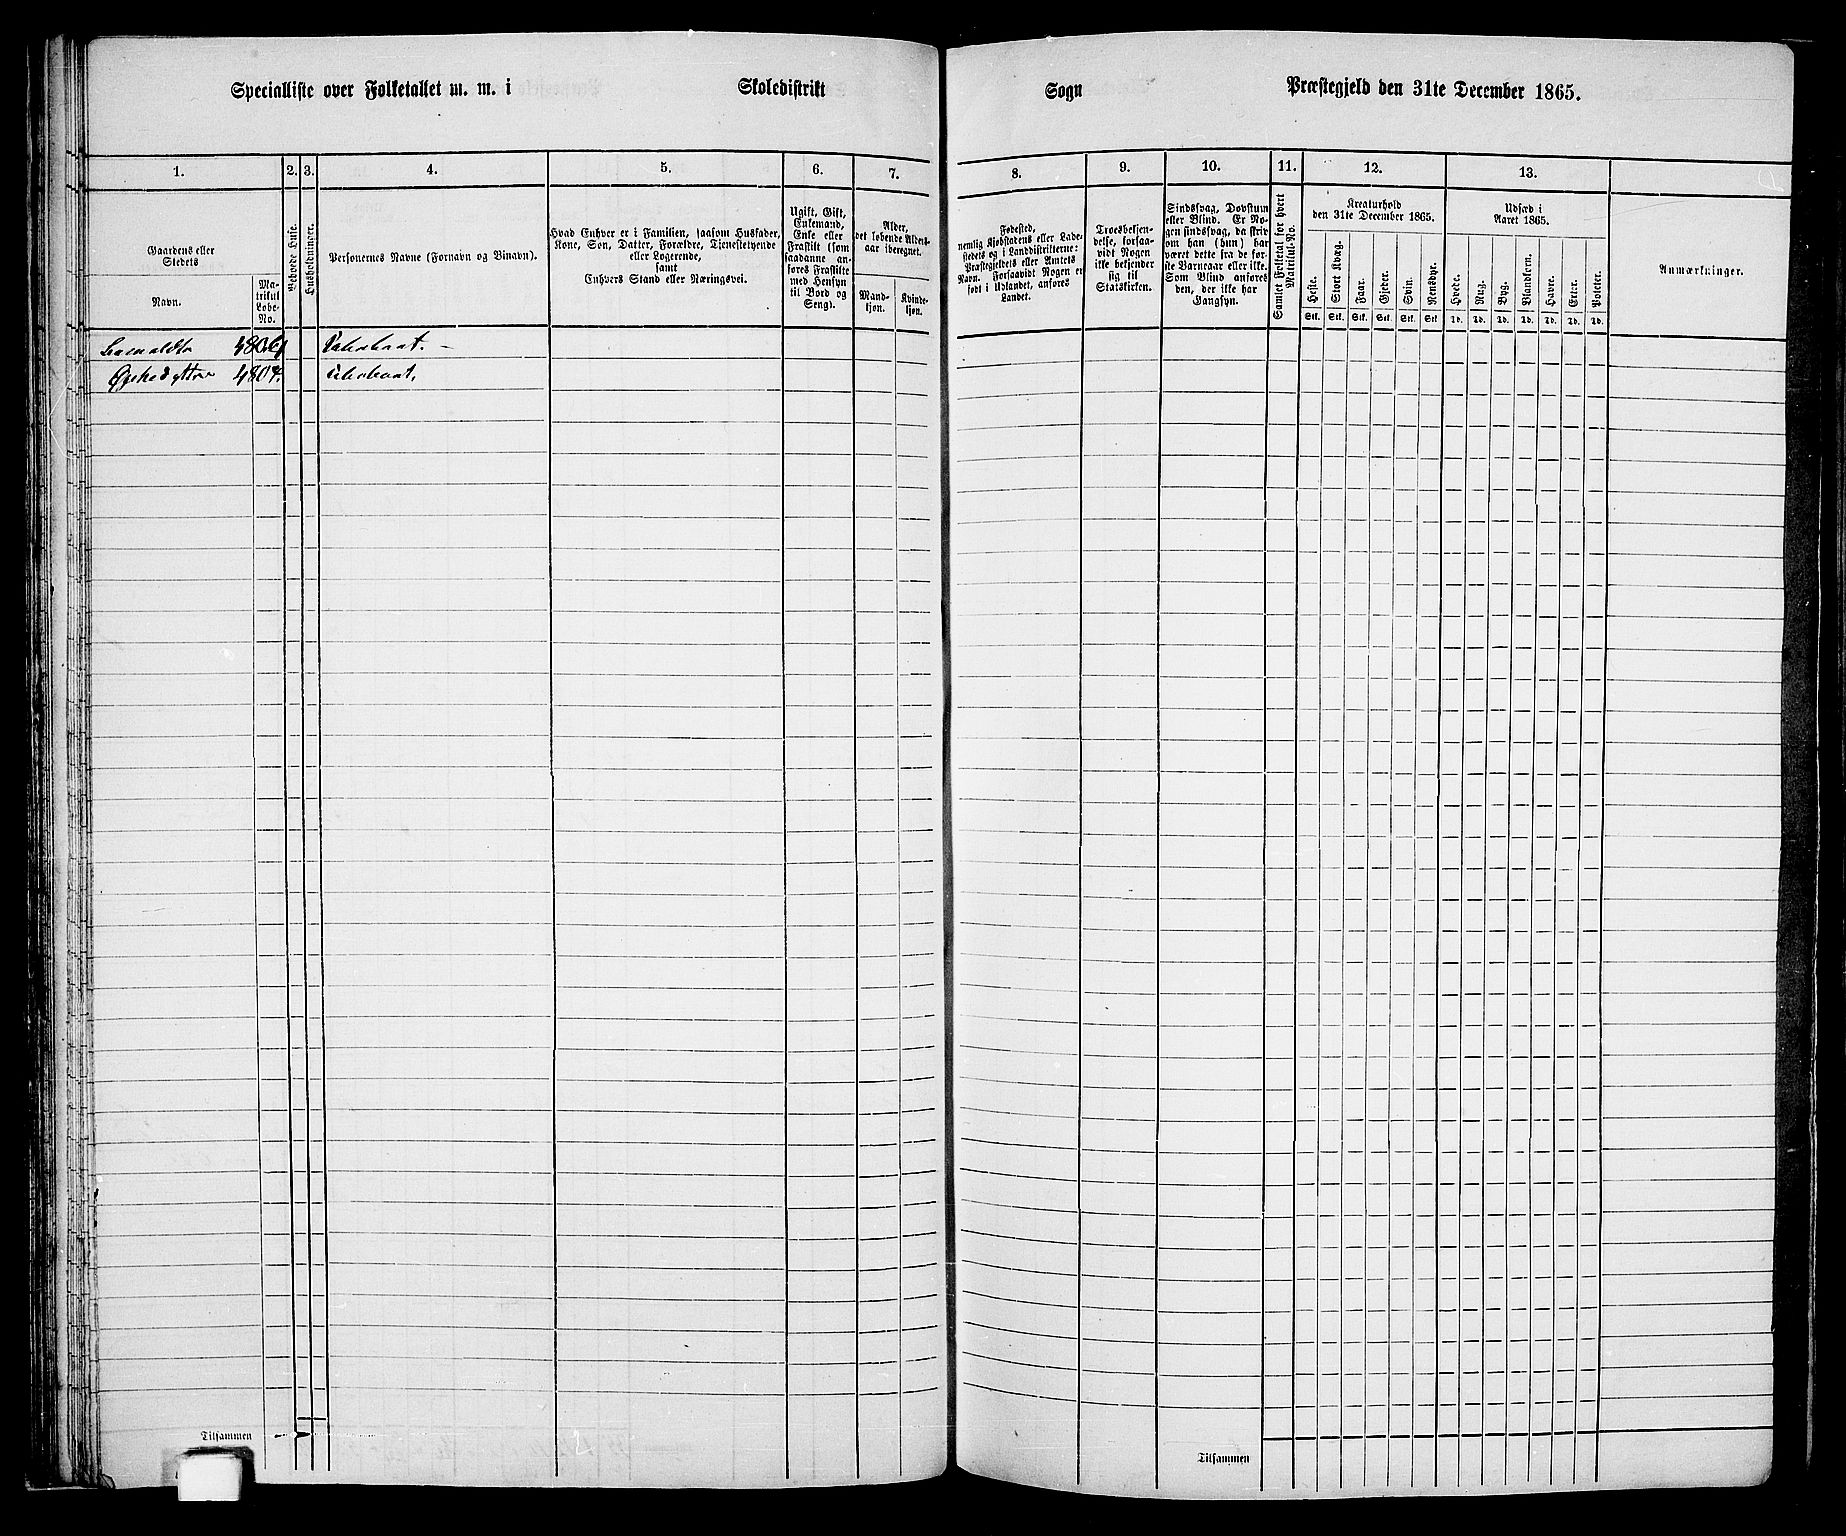 Specialliste over Folketallet m. m. i Skoledistrikt Sogn Præstegjeld den 31te December 1865.
1. 2. 3. 4. 5. 6. 7. 8. 9. 10. 11. 12. 13.
Gaardens eller
Stedets
Navn.
Ma-
trikul
Løbe-
No.
Beboede Huse.
Husholdninger.
Personernes Navne (Fornavn og Binavn).
Hvad Enhver er i Familien, saasom Husfader,
Kone, Søn, Datter, Forældre, Tjenestetyende
eller Logerende,
samt
Enhvers Stand eller Næringsvei.
Ugift, Gift,
Enkemand,
Enke eller
Fraskilt (som
saadanne an-
føres Fraskilte
med Hensyn
til Bord og
Seng).
Alder,
det løbende Alders-
aar iberegnet.
Mand-
kjøn.
Kvinde-
kjøn.
Fødested,
nemlig Kjøbstadens eller Lade-
stedets og i Landdistrikterne:
Præstegjeldets eller Amtets
Navn. Forsaavidt Nogen er
født i Udlandet, anføres
Landet.
Troesbekjen-
delse, forsaa-
vidt Nogen
ikke bekjender
sig til
Statskirken.
Sindssvag, Døvstum
eller Blind. Er No-
gen sindssvag, da skriv
om han (hun) har
været dette fra de før-
ste Barneaar eller ikke.
Som Blind anføres
den, der ikke har
Gangsyn.
Samlet Folketal for hvert
Matrikul-No.
Kreaturhold
den 31te December 1865.
Heste.
Stort Kvæg.
Faar.
Gjeder.
Svin.
Rensdyr.
Stk. Stk. Stk. Stk. Stk. Stk.
Udsæd i
Aaret 1865.
Hvede.
Rug.
Byg.
Blandkorn.
Havre.
Erter.
Poteter.
Td. Td. Td. Td. Td. Td. Td.
Anmærkninger.
480
480
Tilsammen
Tilsammen